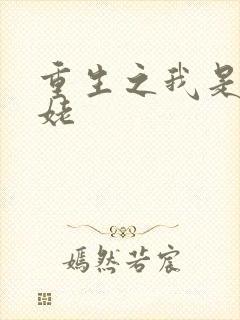 重生之我是
姥
嫣然若宸